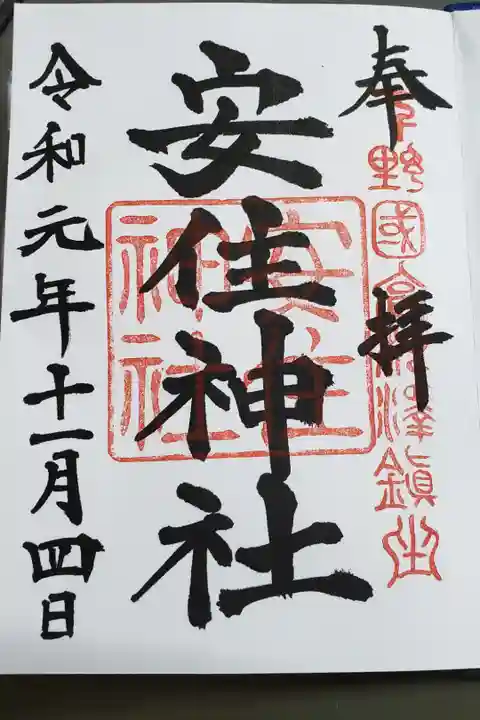 奉拝
下野國高根澤鎮座
安住神社
安住神社
令和元年十一月四日